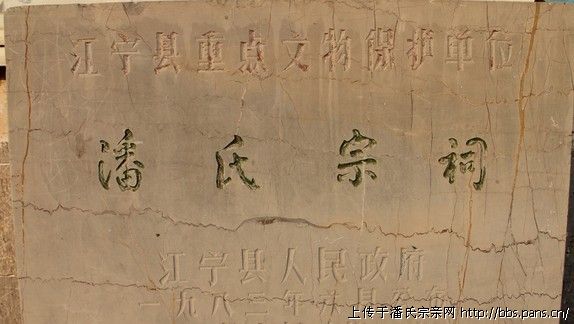 江宁县重点文物保护单位
潘氏宗祠
江宁县人民政府
一九八二年
上传于潘氏宗亲网 http://bbs.pans.cn/